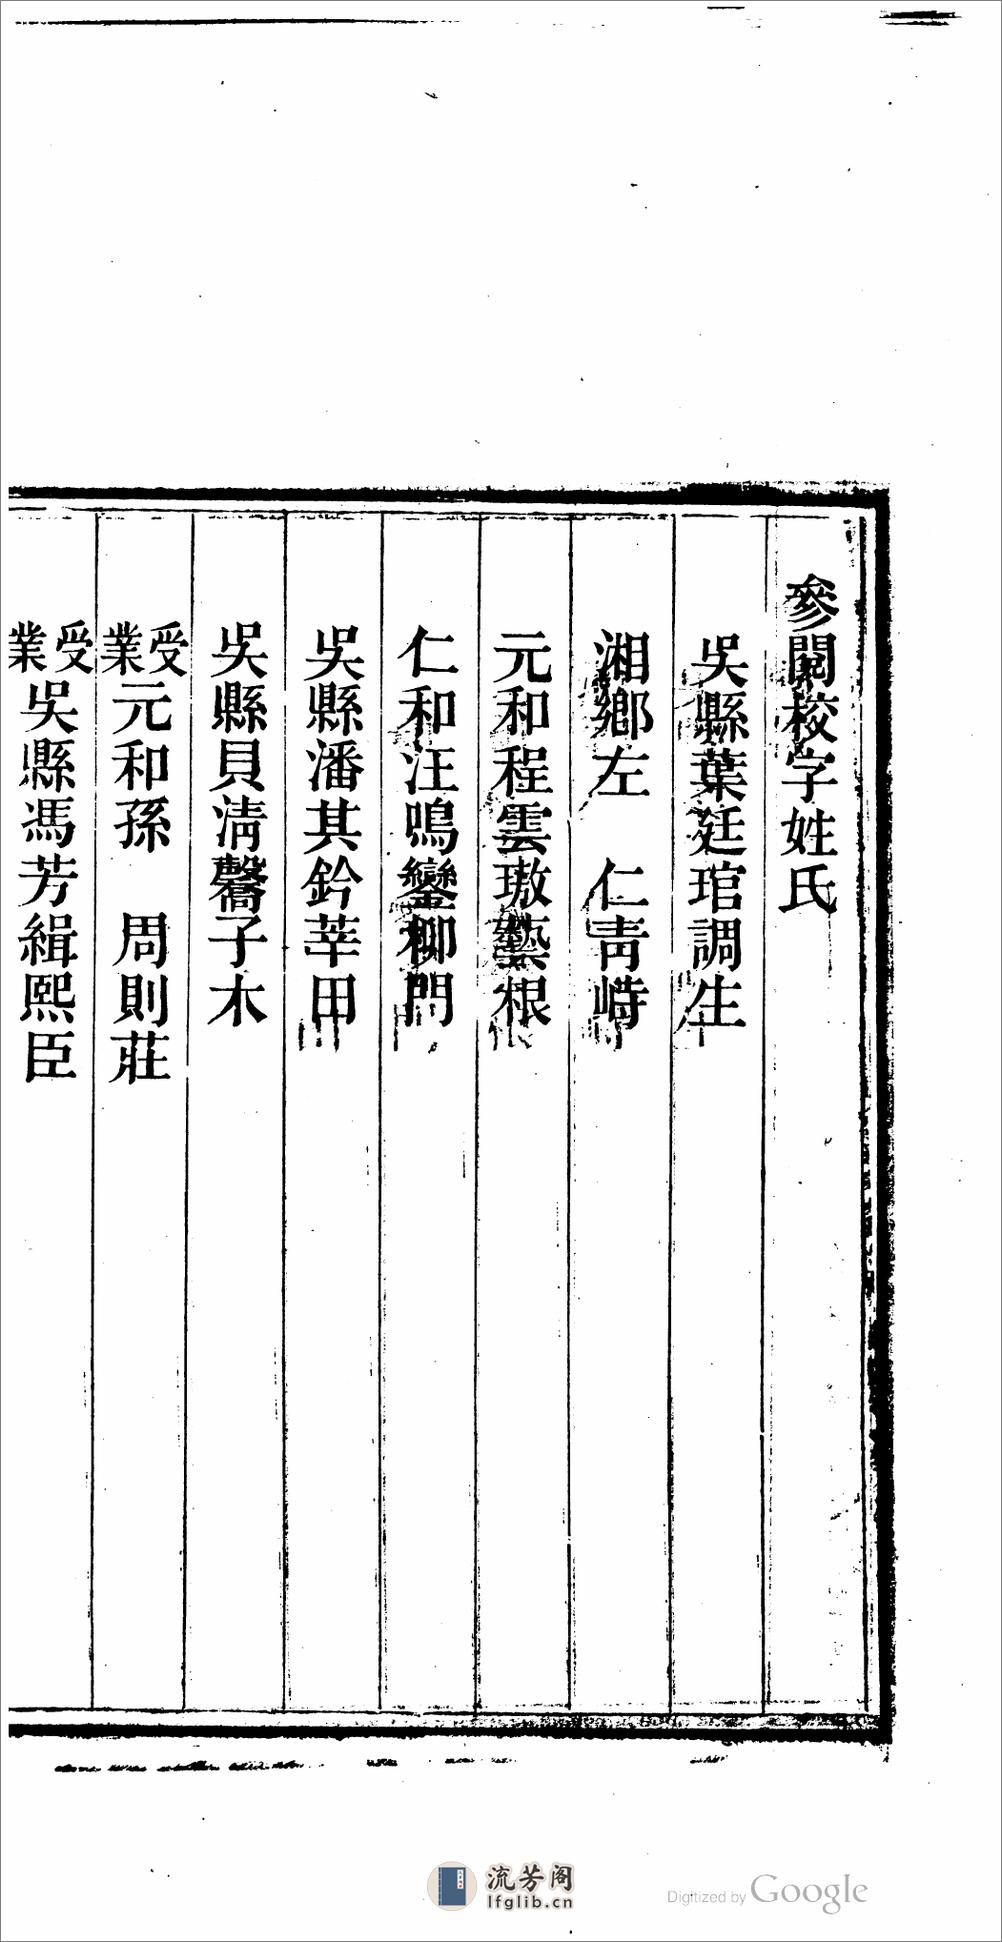 參閱校字姓氏
吳縣葉廷琯調生
湘鄉左　仁青峙
元和程雲璈藝根
仁和汪鳴鑾柳門
吳縣潘其鈐莘田
吳縣貝清馨子木
受業元和孫　周則莊
受業吳縣馮芳緝熙臣
流芳阁
lfglib.cn
Digitized by Google